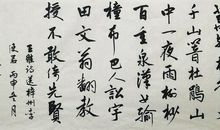 千山響杜鵑山
中一夜雨樹杪
百重泉漢女輸
橦布巴人訟芋
田文翁翻教
授不敢倚先賢
王維詩送梓州李
使君 丙申 月